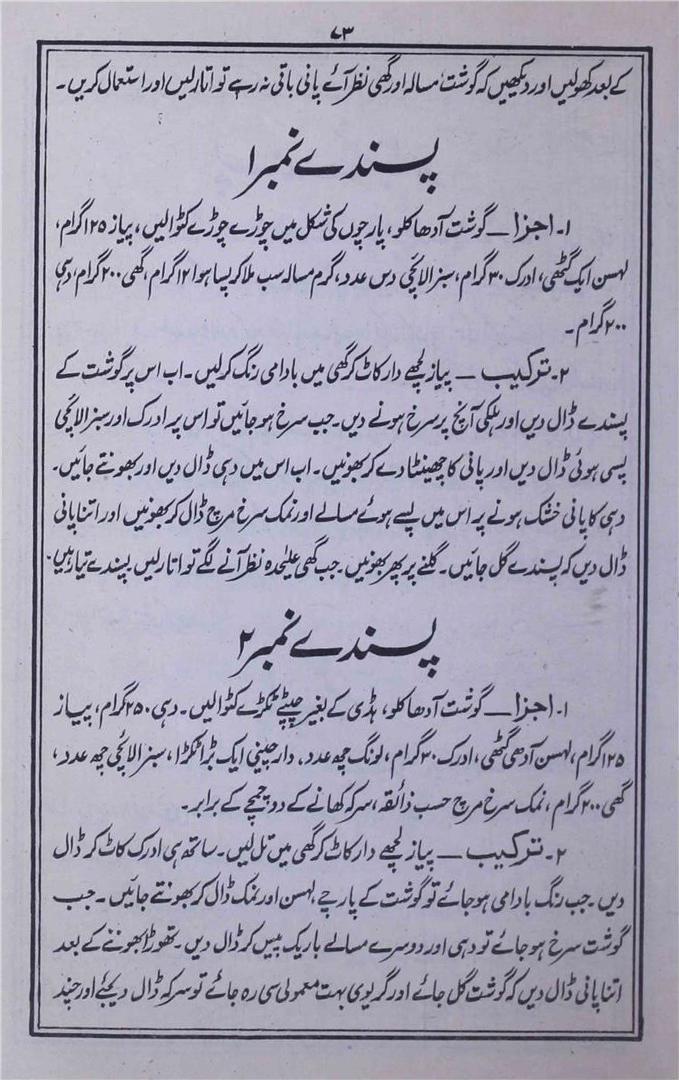 ۷۳
کے بعد کھولیں اور دیکھیں کہ گوشت مسالہ اور گھی نظر آئے پانی باقی نہ رہے تو اتار لیں اور استعمال کریں۔
پسندے نمبر ۱
۱۔ اجزا — گوشت آدھا کلو، پارچوں کی شکل میں چوڑے چوڑے کٹوا لیں، پیاز ۱۲۵ گرام،
لہسن ایک گٹھی، ادرک ۳۰ گرام، سبز الائچی دس عدد، گرم مسالہ سب ملا کر پسا ہوا ۱۲ گرام، گھی ۲۰۰ گرام، دہی
۲۰۰ گرام۔
۲۔ ترکیب — پیاز لچھے دار کاٹ کر گھی میں بادامی رنگ کر لیں۔ اب اس پر گوشت کے
پسندے ڈال دیں اور ہلکی آنچ پر سرخ ہونے دیں۔ جب سرخ ہو جائیں تو اس پر ادرک اور سبز الائچی
پسی ہوئی ڈال دیں اور پانی کا چھینٹا دے کر بھونیں۔ اب اس میں دہی ڈال دیں اور بھونتے جائیں۔
دہی کا پانی خشک ہونے پر اس میں پسے ہوئے مسالے اور نمک سرخ مرچ ڈال کر بھونیں اور اتنا پانی
ڈال دیں کہ پسندے گل جائیں۔ گلنے پر پھر بھونیں۔ جب گھی علیحدہ نظر آنے لگے تو اتار لیں پسندے تیار ہیں۔
پسندے نمبر ۲
۱۔ اجزا — گوشت آدھا کلو، ہڈی کے بغیر چپٹے ٹکڑے کٹوا لیں۔ دہی ۲۵۰ گرام، پیاز
۱۲۵ گرام، لہسن آدھی گٹھی، ادرک ۳۰ گرام، لونگ چھ عدد، دار چینی ایک بڑا ٹکڑا، سبز الائچی چھ عدد،
گھی ۲۰۰ گرام، نمک سرخ مرچ حسب ذائقہ، سرکہ کھانے کے دو چمچے کے برابر۔
۲۔ ترکیب — پیاز لچھے دار کاٹ کر گھی میں تل لیں۔ ساتھ ہی ادرک کاٹ کر ڈال
دیں۔ جب رنگ بادامی ہو جائے تو گوشت کے پارچے، لہسن اور نمک ڈال کر بھونتے جائیں۔ جب
گوشت سرخ ہو جائے تو دہی اور دوسرے مسالے باریک پیس کر ڈال دیں۔ تھوڑا بھوننے کے بعد
اتنا پانی ڈال دیں کہ گوشت گل جائے اور گریوی بہت معمولی سی رہ جائے تو سرکہ ڈال دیجئے اور چند